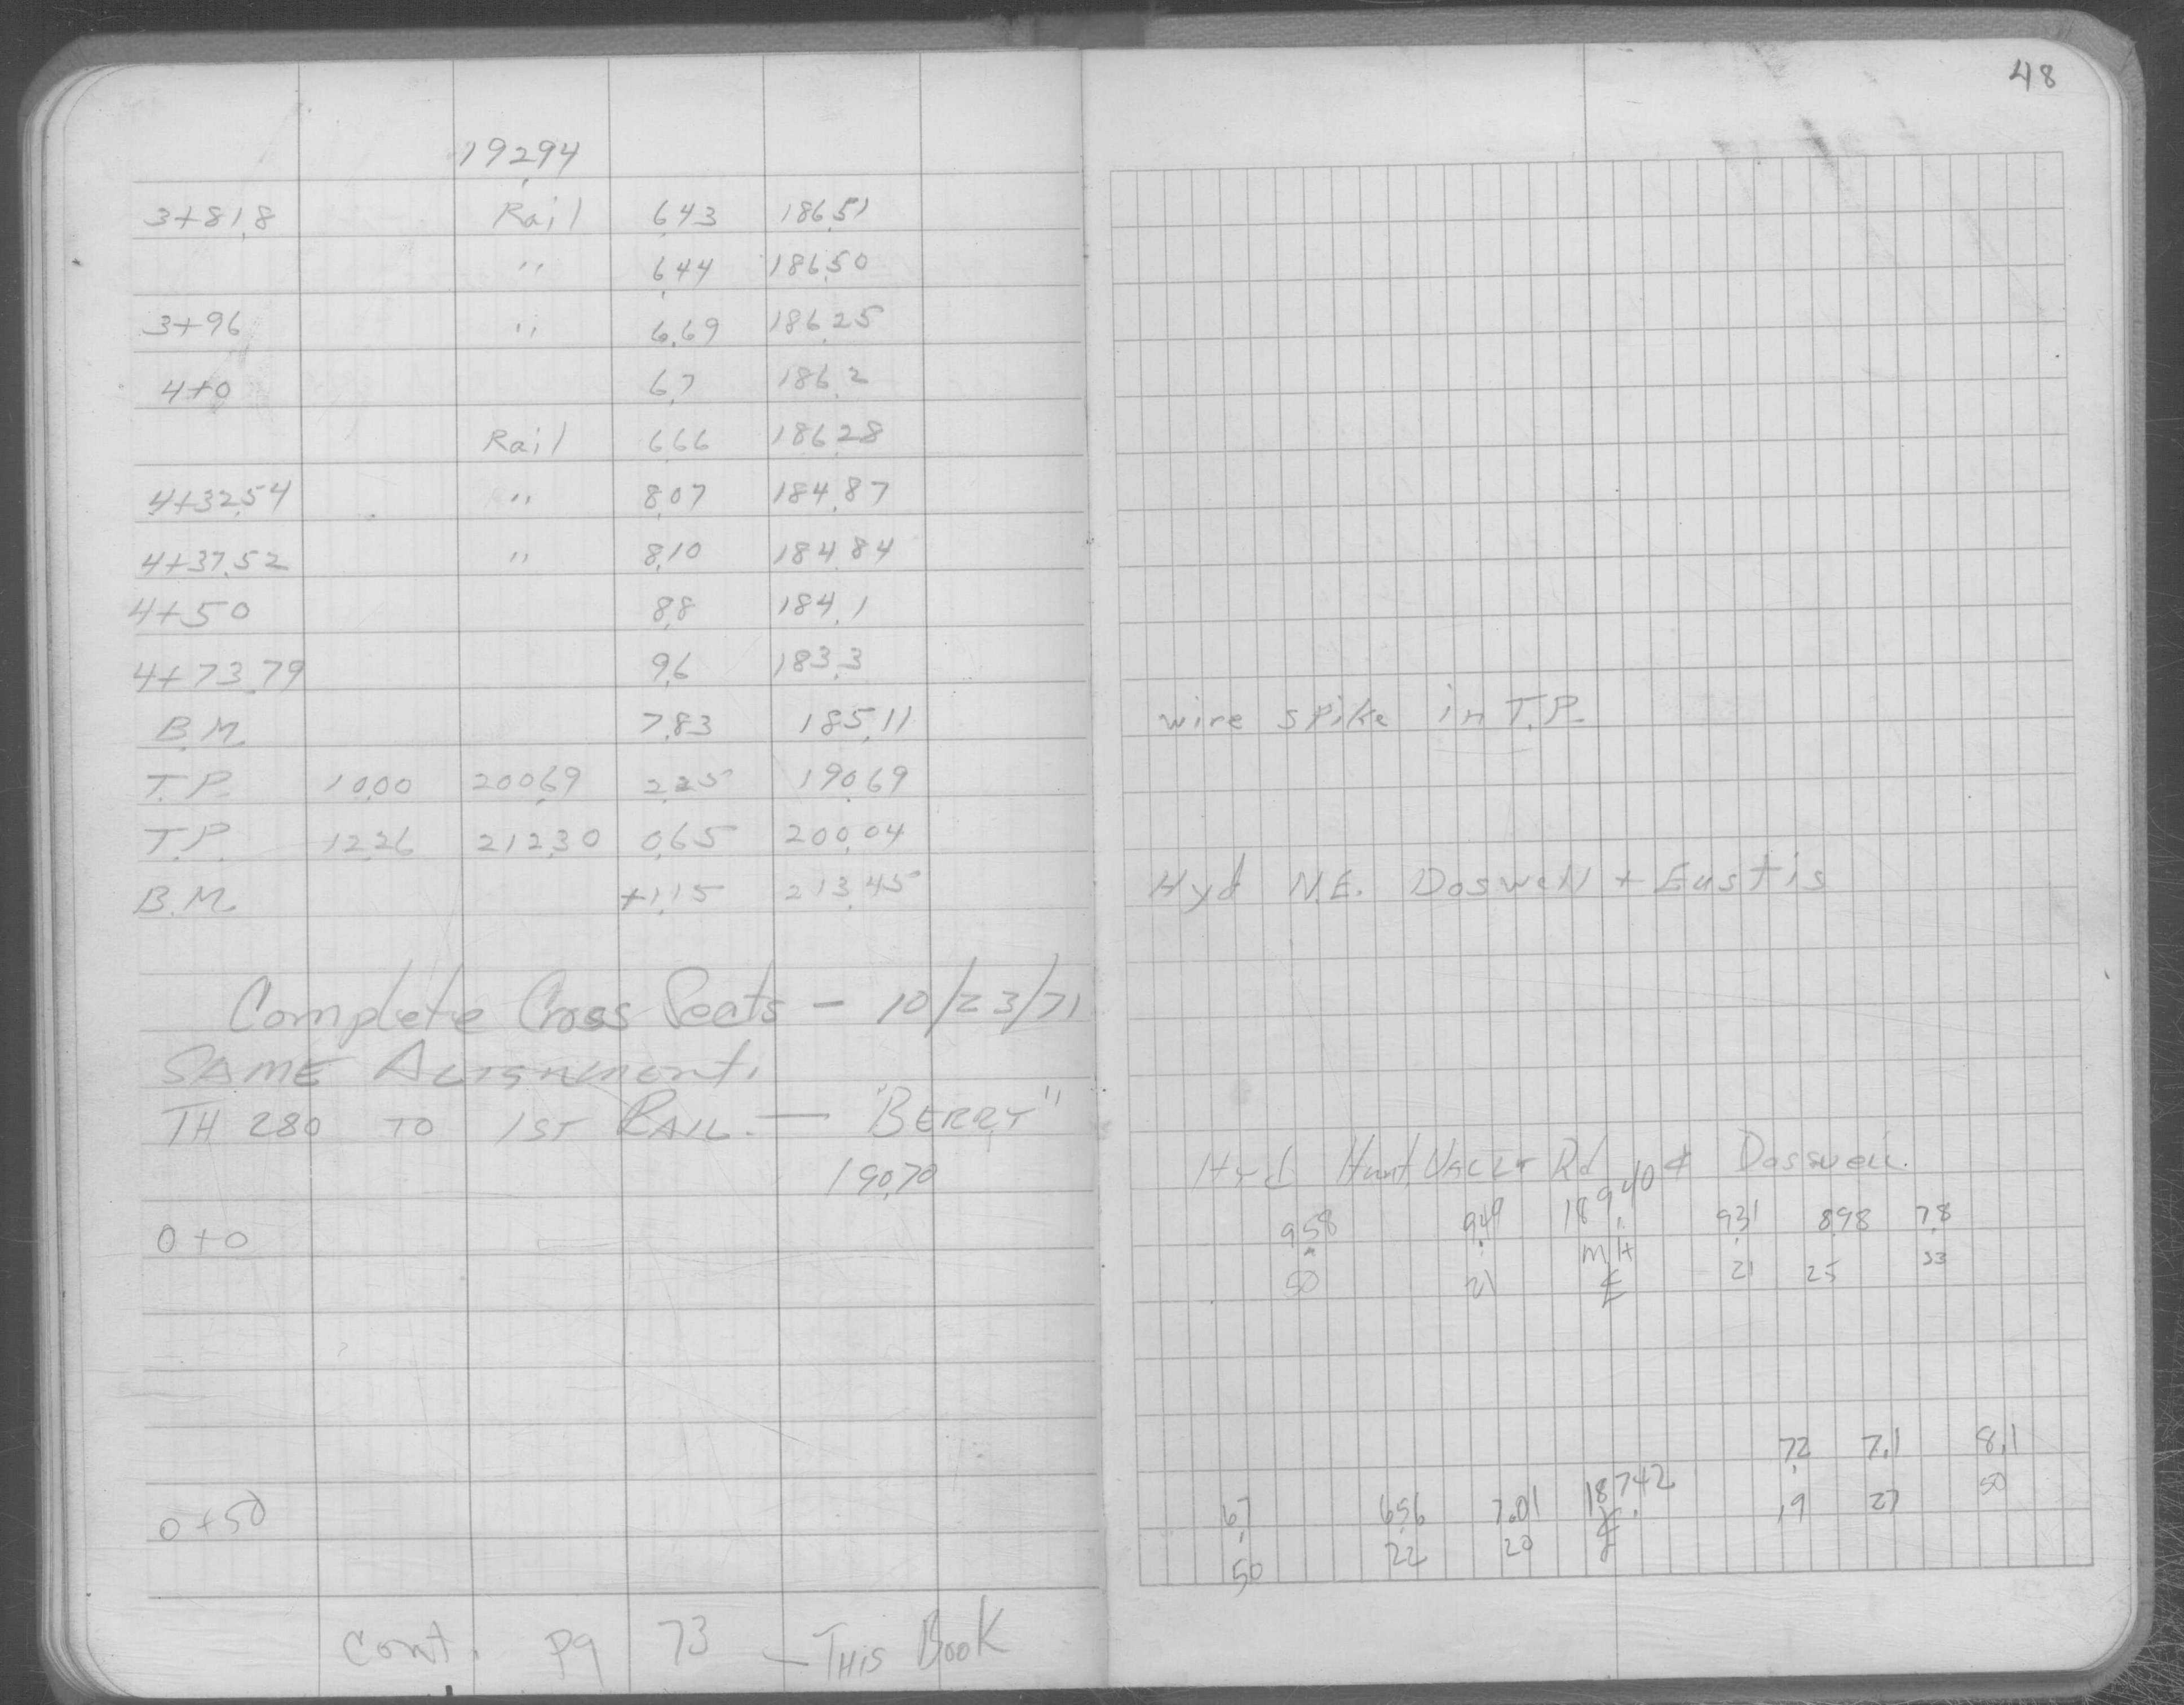 48
192.94
3+81.8 Rail 6.43 186.51
" 6.44 186.50
3+96 " 6.69 186.25
4+0 6.7 186.2
Rail 6.66 186.28
4+32.54 " 8.07 184.87
4+37.52 " 8.10 184.84
4+50 8.8 184.1
4+73.79 9.6 183.3
B.M. 7.83 185.11 wire spike in T.P.
T.P. 10.00 200.69 2.25 190.69
T.P. 12.26 212.30 0.65 200.04
B.M. +1.15 213.45 Hyd N.E. Doswell + Eustis
Complete Cross Sects - 10/23/71
SAME ALIGNMENT.
TH 280 TO 1ST RAIL. — "BERRY"
190.70 Hyd Rd & Doswell
0+0 9.58 9.49 189.40 9.31 8.98 7.8
MH
50 21 ℄ 21 25 33
7.2 7.1 8.1
19 27 50
0+50 6.7 6.56 7.01 187.42
50 22 20 ℄
Cont. pg 73 - THIS BOOK